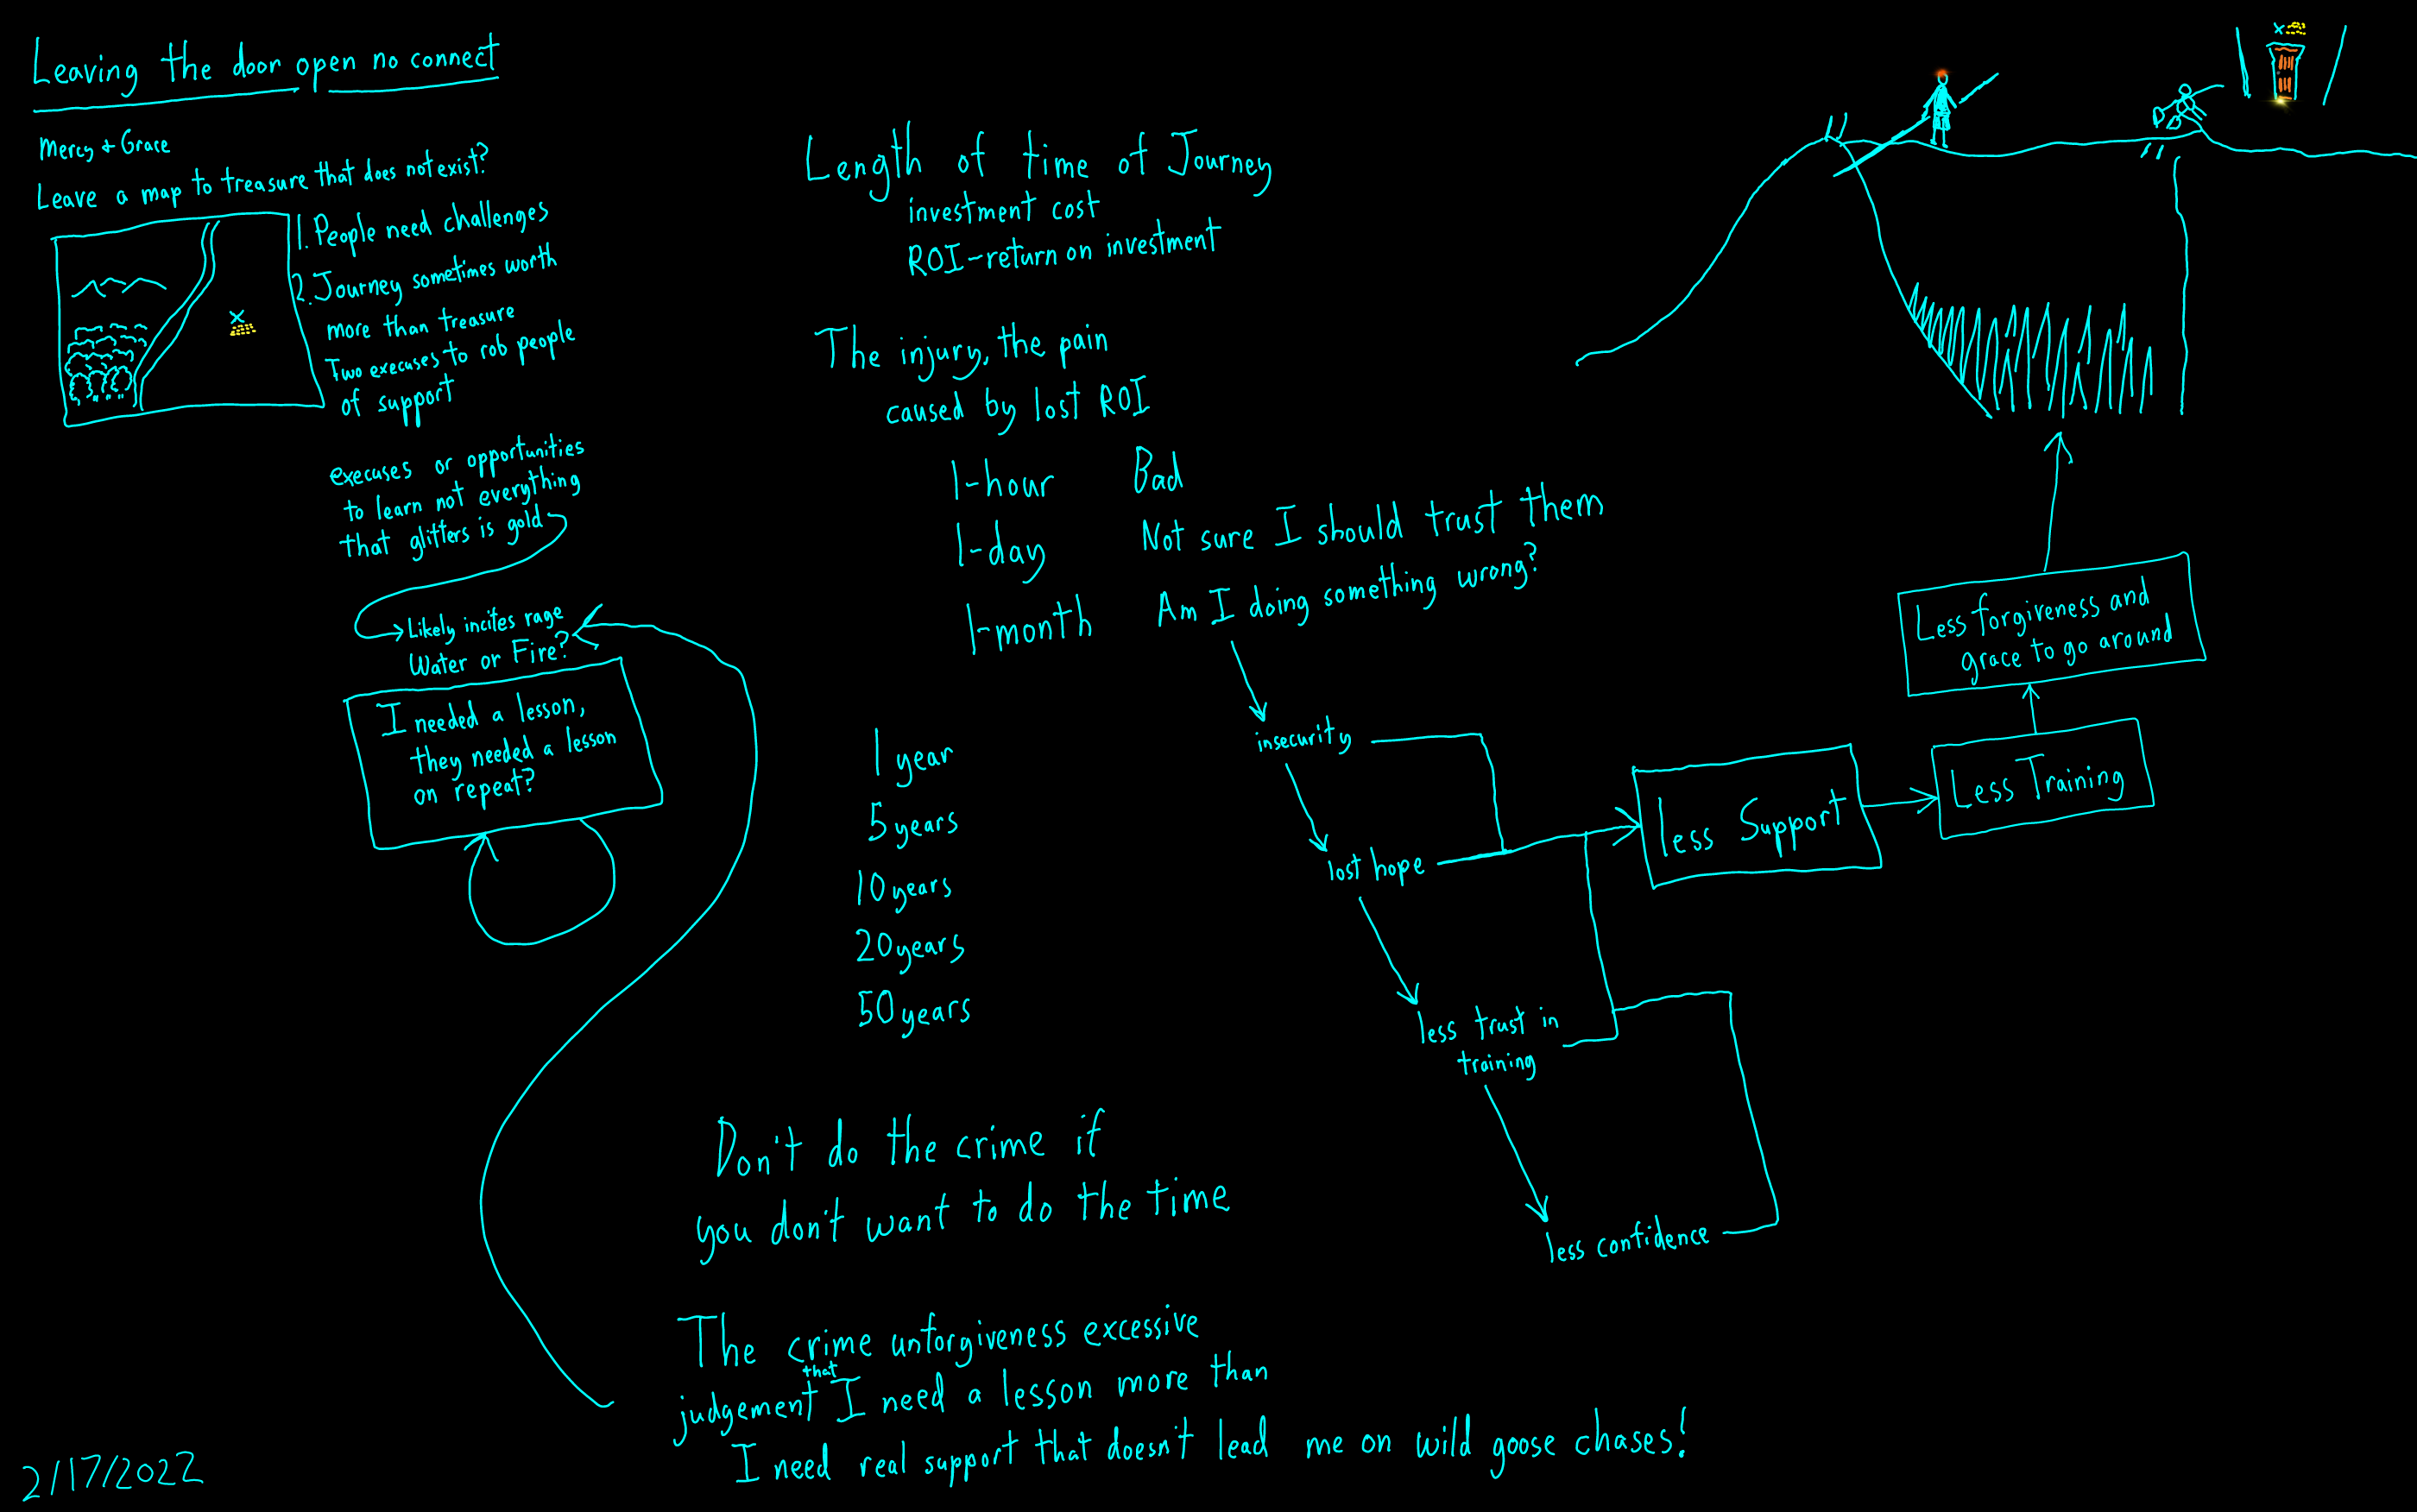 Leaving the door open no connect
Mercy & Grace
Leave a map to treasure that does not exist?
1. People need challenges
2. Journey sometimes worth
more than treasure
Two execuses to rob people
of support
execuses or opportunities
to learn not everything
that glitters is gold
Likely incites rage
Water or Fire?
I needed a lesson,
they needed a lesson
on repeat?
Length of time of Journey
investment cost
ROI-return on investment
The injury, the pain
caused by lost ROI
1-hour Bad
1-day Not sure I should trust them
1-month Am I doing something wrong?
1 year
5 years
10 years
20 years
50 years
insecurity
lost hope
less trust in
training
less confidence
less Support
Less Training
Less forgiveness and
grace to go around
Don't do the crime if
you don't want to do the time
The crime unforgiveness excessive
judgement that I need a lesson more than
I need real support that doesn't lead me on wild goose chases!
2/17/2022